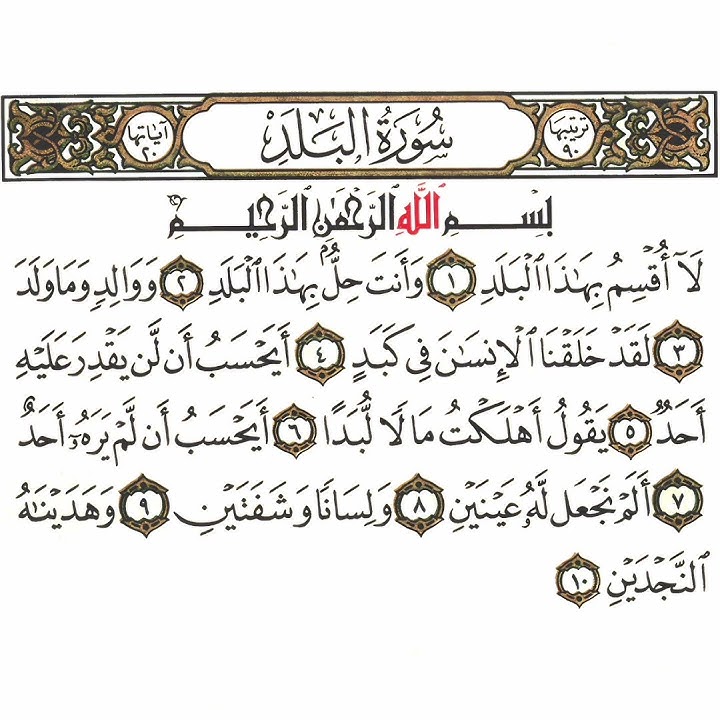 ترتيبها ٩٠ سُورَةُ الْبَلَدِ آياتها ٢٠
بِسْمِ ٱللَّهِ ٱلرَّحْمَٰنِ ٱلرَّحِيمِ
لَآ أُقْسِمُ بِهَٰذَا ٱلْبَلَدِ ١ وَأَنتَ حِلٌّۢ بِهَٰذَا ٱلْبَلَدِ ٢ وَوَالِدٍ وَمَا وَلَدَ
٣ لَقَدْ خَلَقْنَا ٱلْإِنسَٰنَ فِى كَبَدٍ ٤ أَيَحْسَبُ أَن لَّن يَقْدِرَ عَلَيْهِ
أَحَدٌ ٥ يَقُولُ أَهْلَكْتُ مَالًا لُّبَدًا ٦ أَيَحْسَبُ أَن لَّمْ يَرَهُۥٓ أَحَدٌ
٧ أَلَمْ نَجْعَل لَّهُۥ عَيْنَيْنِ ٨ وَلِسَانًا وَشَفَتَيْنِ ٩ وَهَدَيْنَٰهُ
ٱلنَّجْدَيْنِ ١٠